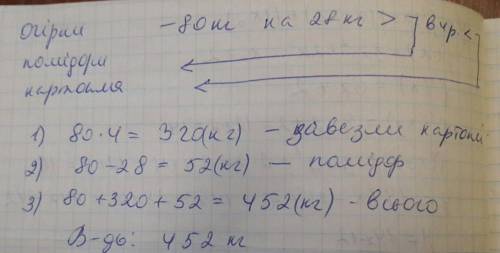 огірки - 80 кг на 28 кг > в 4 р. <
помідори
картопля
1) 80 · 4 = 320 (кг) - завезли картоплі
2) 80 - 28 = 52 (кг) - помідор
3) 80 + 320 + 52 = 452 (кг) - всього
В-дь: 452 кг